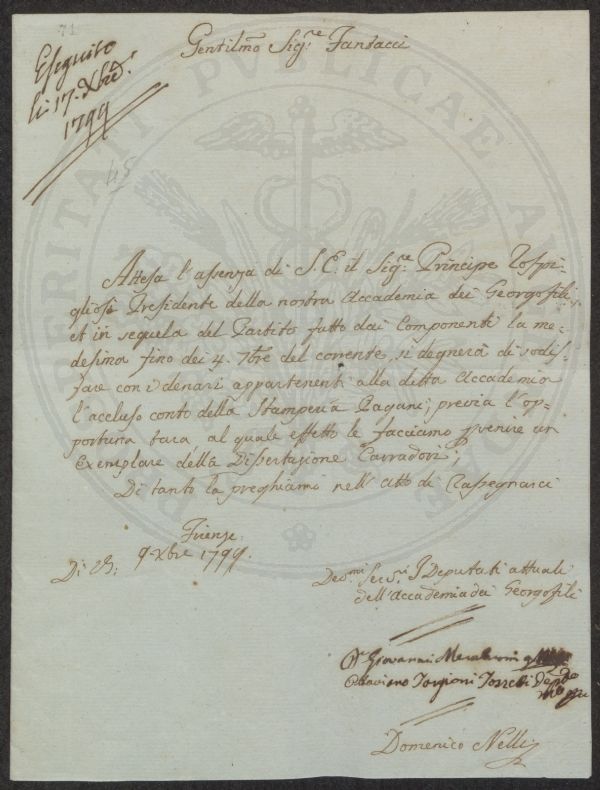 71
Eseguito
li 17. Xbre
1799
45
Gentilmo Sigre Fansacci
PROSPERITATI PUBLICAE AU
Attesa l'assenza di S. E. il Sigre Principe Rospi-
gliosi Presidente della nostra Accademia dei Georgofili,
et in sequela del Partito fatto dai Componenti la me-
desima fino dei 4. 7bre del corrente, si degnerà di sodis-
fare con i denari appartenenti alla detta Accademia
l'accluso conto della Stamperia Pagani; previa l'op-
portuna tara al quale effetto le facciamo pvenire un
Exemplare della Dissertazione Carradori;
Di tanto la preghiamo nell'Atto di Rassegnarci
Firenze
Di VS. 9 Xbre 1799.
Devmi Servri I Deputati attuali
dell'Accademia dei Georgofili
Dr Giovanni
Ottaviano Targioni Tozzetti
Domenico Nelli